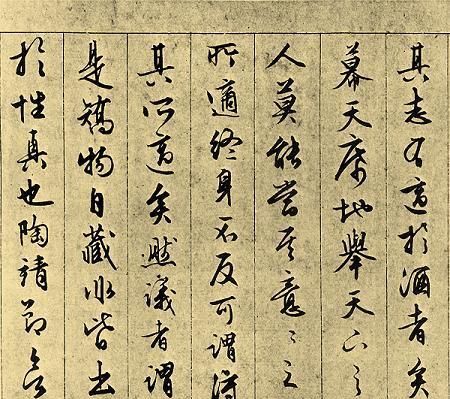 其志有適於酒者矣
幕天席地舉天下之
人莫能嘗其意〻之
所適終身不反可謂得
其所適矣然議者謂
是矯物自藏皆出
於性真也陶靖節